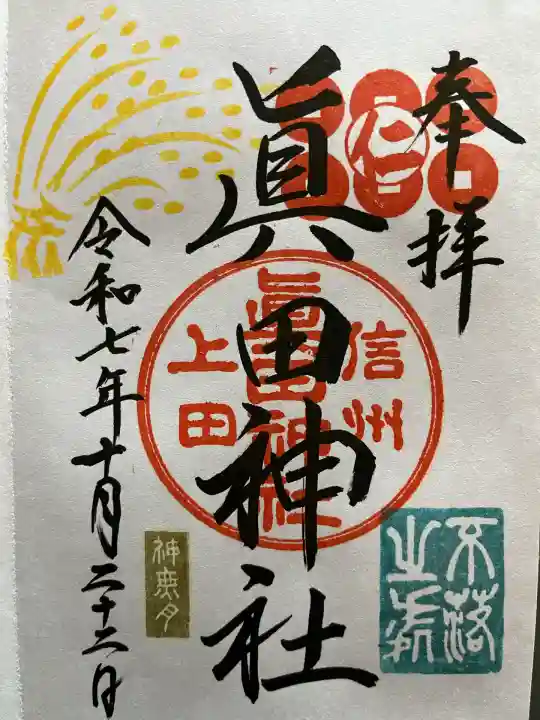 奉拝
仁
眞田神社
信州
眞田神社
上田
不落
之城
令和七年十月二十二日
神無月